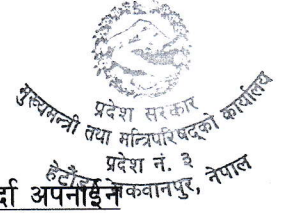 प्रदेश सरकार
मुख्यमन्त्री तथा मन्त्रिपरिषद्को कार्यालय
प्रदेश नं. ३
हेटौंडा, मकवानपुर, नेपाल
र्दा अपनाईने